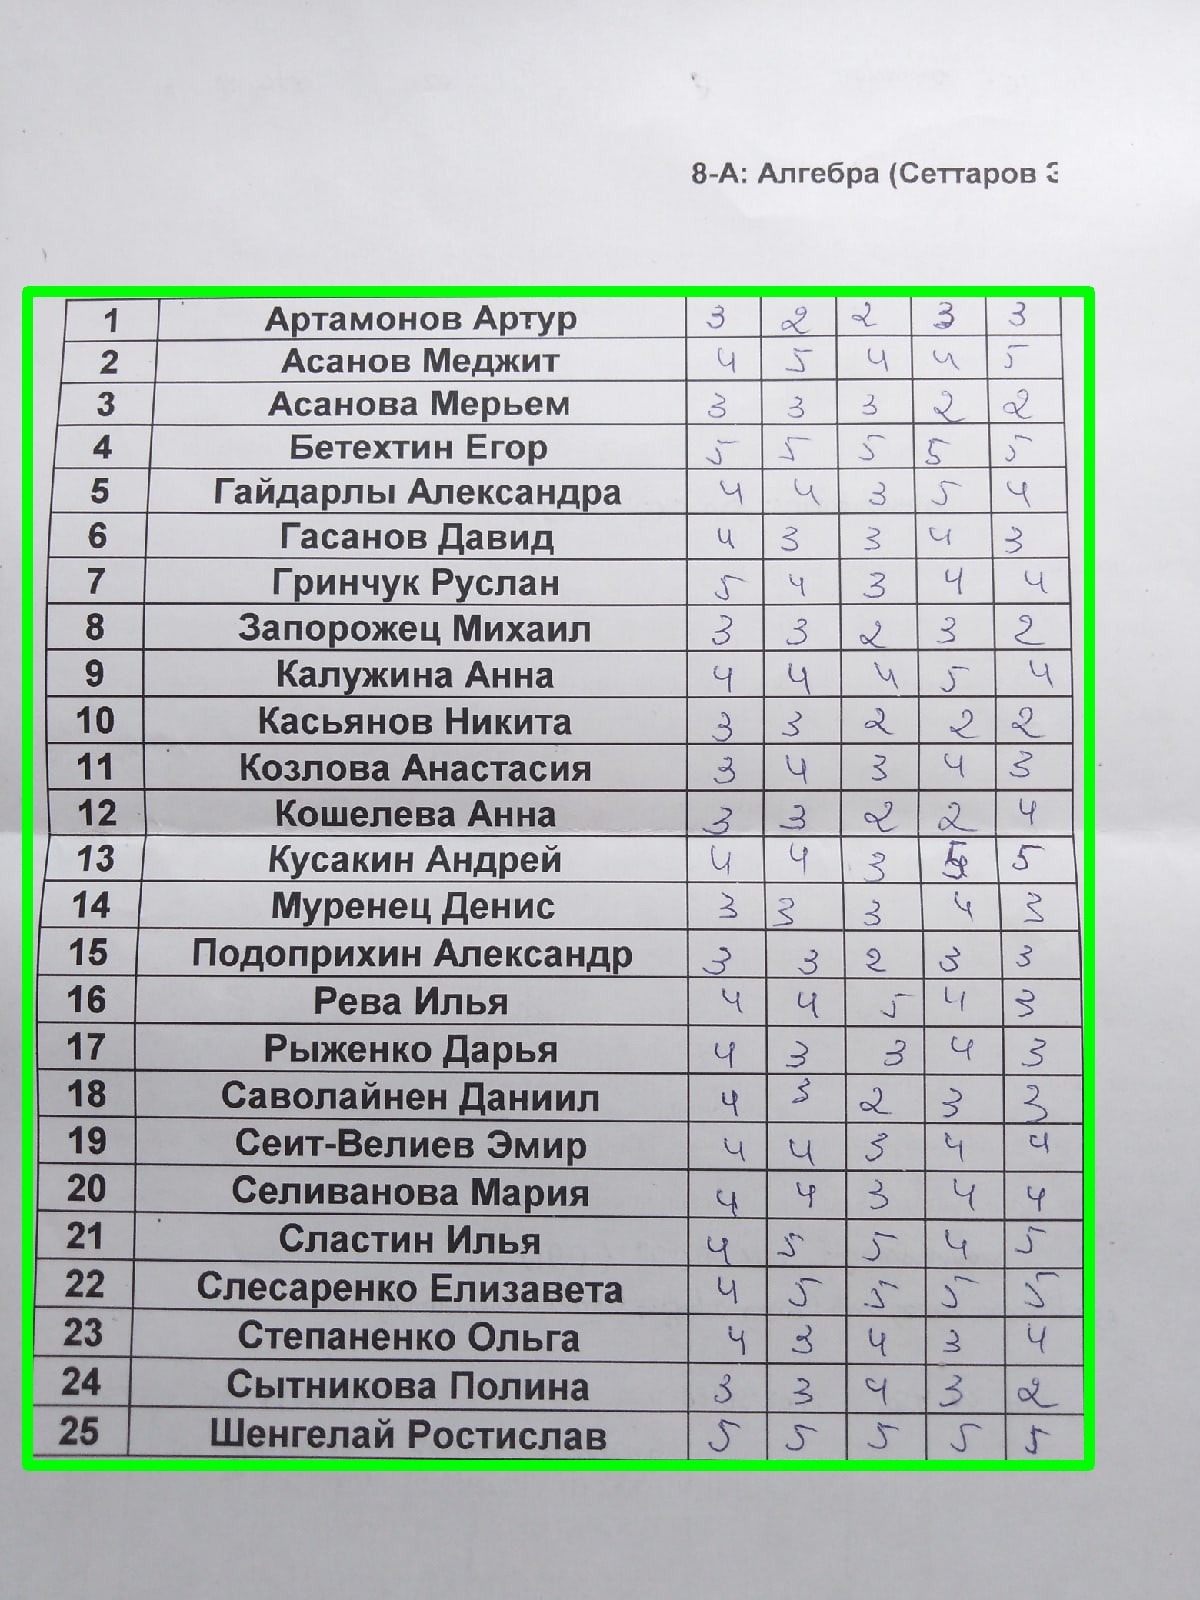 8-А: Алгебра (Сеттаров Э
1 Артамонов Артур 3 2 2 3 3
2 Асанов Меджит 4 5 4 4 5
3 Асанова Мерьем 3 3 3 2 2
4 Бетехтин Егор 5 5 5 5 5
5 Гайдарлы Александра 4 4 3 5 4
6 Гасанов Давид 4 3 3 4 3
7 Гринчук Руслан 5 4 3 4 4
8 Запорожец Михаил 3 3 2 3 2
9 Калужина Анна 4 4 4 5 4
10 Касьянов Никита 3 3 2 2 2
11 Козлова Анастасия 3 4 3 4 3
12 Кошелева Анна 3 3 2 2 4
13 Кусакин Андрей 4 4 3 5
14 Муренец Денис 3 3 3 4 3
15 Подоприхин Александр 3 3 2 3 3
16 Рева Илья 4 4 5 4 3
17 Рыженко Дарья 4 3 3 4 3
18 Саволайнен Даниил 4 3 2 3 3
19 Сеит-Велиев Эмир 4 4 3 4 4
20 Селиванова Мария 4 4 3 4 4
21 Сластин Илья 4 5 5 4 5
22 Слесаренко Елизавета 4 5 5 5 5
23 Степаненко Ольга 4 3 4 3 4
24 Сытникова Полина 3 3 4 3 2
25 Шенгелай Ростислав 5 5 5 5 5